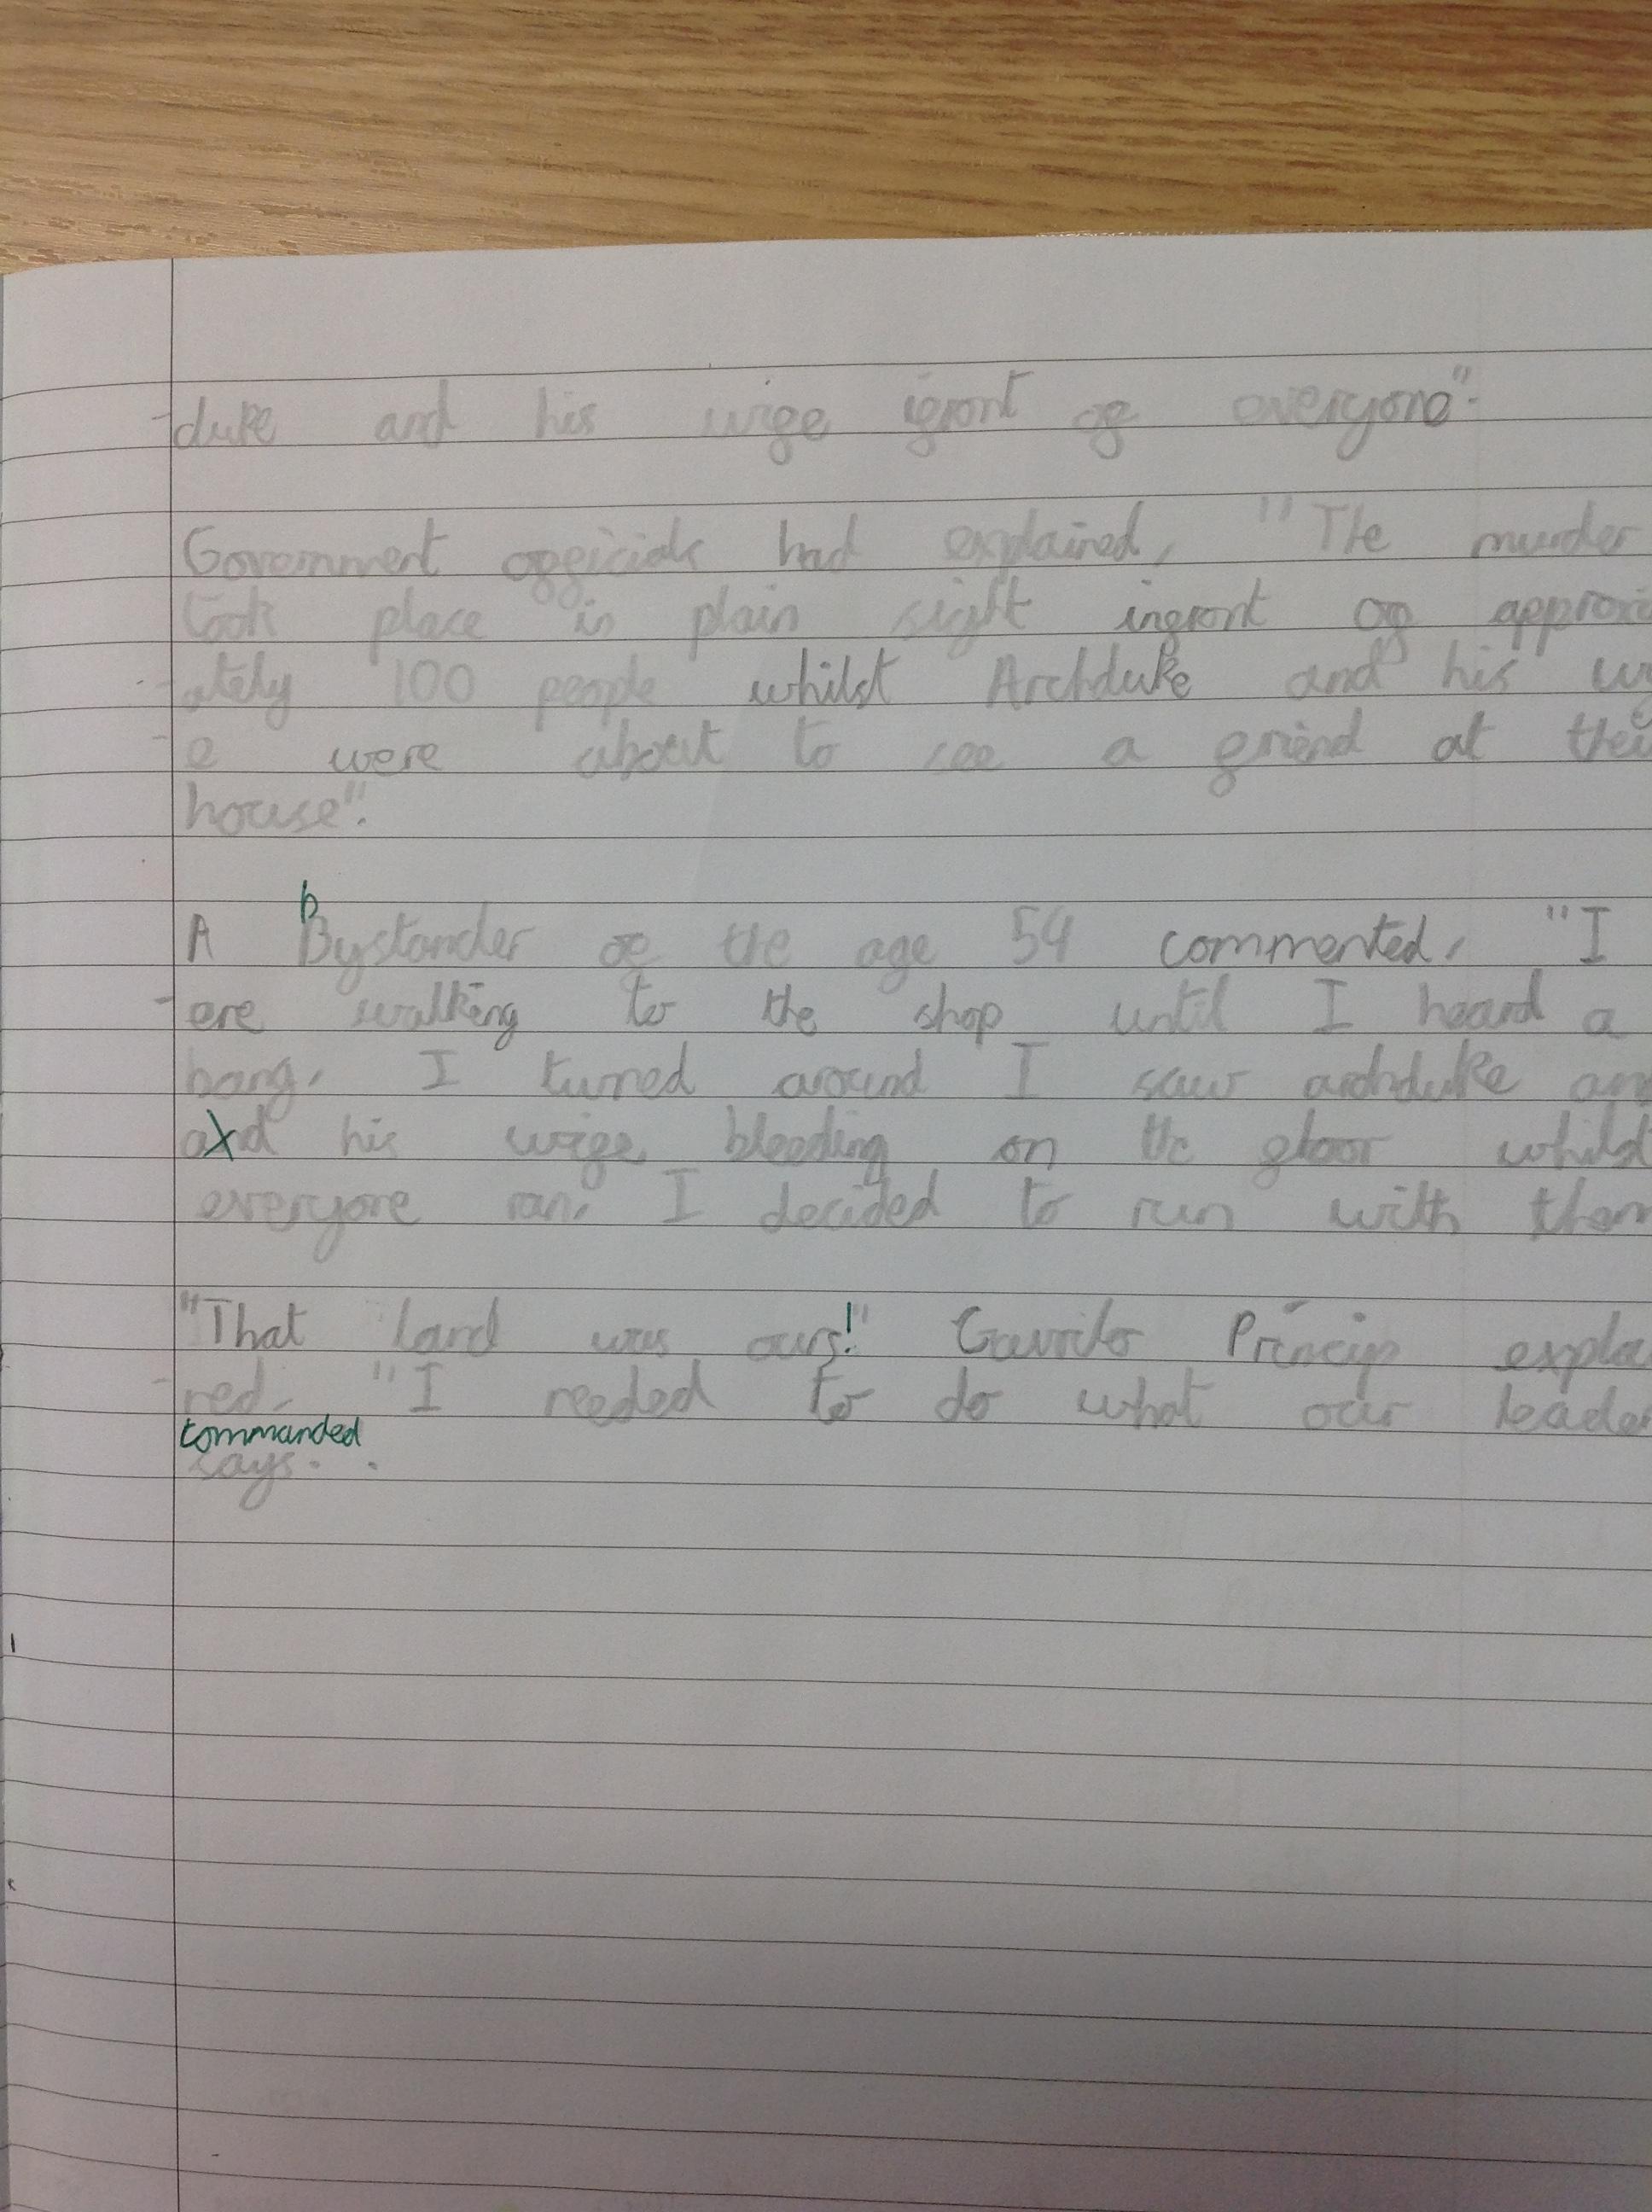 -duke and his wife ifront of everyone".
Government officials had explained, "The murder
took place in plain sight infront of approxi
-ately 100 people whilst Archduke and his wi
-e were about to see a friend at thei
house".
b
A Bystander of the age 54 commented, "I
-ere walking to the shop until I heard a
bang, I turned around I saw archduke an
and his wife bleeding on the floor whilst
everyone ran, I decided to run with them
"That land was ours!" Gavrilo Princip expla
-red, "I needed to do what our leader
commanded
says.